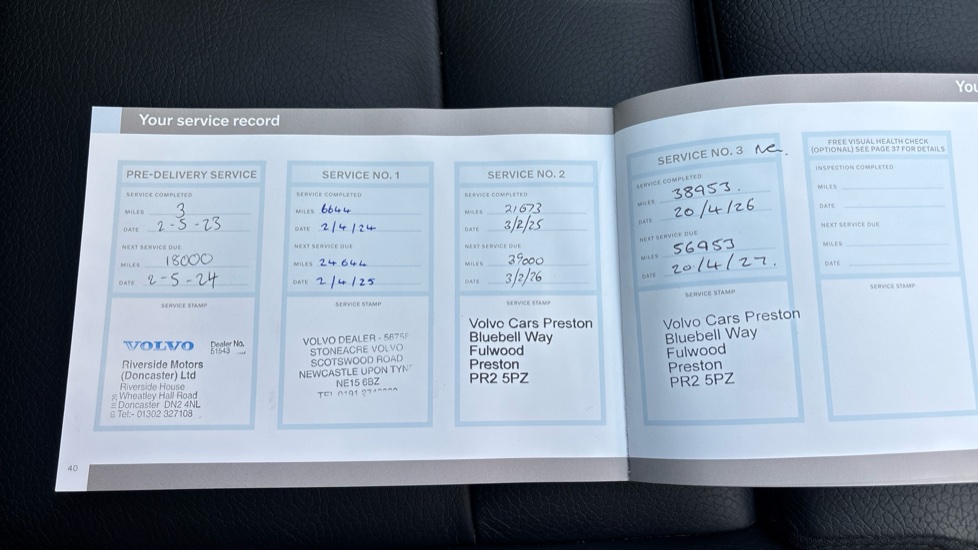 Your service record
PRE-DELIVERY SERVICE
SERVICE COMPLETED
MILES 3
DATE 2-5-23
NEXT SERVICE DUE
MILES 18000
DATE 2-5-24
SERVICE STAMP
VOLVO Dealer No.
51543
Riverside Motors
(Doncaster) Ltd
Riverside House
Wheatley Hall Road
Doncaster DN2 4NL
Tel:- 01302 327108
SERVICE NO. 1
SERVICE COMPLETED
MILES 6644
DATE 2/4/24
NEXT SERVICE DUE
MILES 24644
DATE 2/4/25
SERVICE STAMP
VOLVO DEALER -
STONEACRE VOLVO
SCOTSWOOD ROAD
NEWCASTLE UPON TYN
NE15 6BZ
TEL 0191
SERVICE NO. 2
SERVICE COMPLETED
MILES 21673
DATE 3/2/25
NEXT SERVICE DUE
MILES 39000
DATE 3/2/26
SERVICE STAMP
Volvo Cars Preston
Bluebell Way
Fulwood
Preston
PR2 5PZ
40
You
SERVICE NO. 3
SERVICE COMPLETED
MILES 38953.
DATE 20/4/26
NEXT SERVICE DUE
MILES 56953
DATE 20/4/27.
SERVICE STAMP
Volvo Cars Preston
Bluebell Way
Fulwood
Preston
PR2 5PZ
FREE VISUAL HEALTH CHECK
(OPTIONAL) SEE PAGE 37 FOR DETAILS
INSPECTION COMPLETED
MILES
DATE
NEXT SERVICE DUE
MILES
DATE
SERVICE STAMP